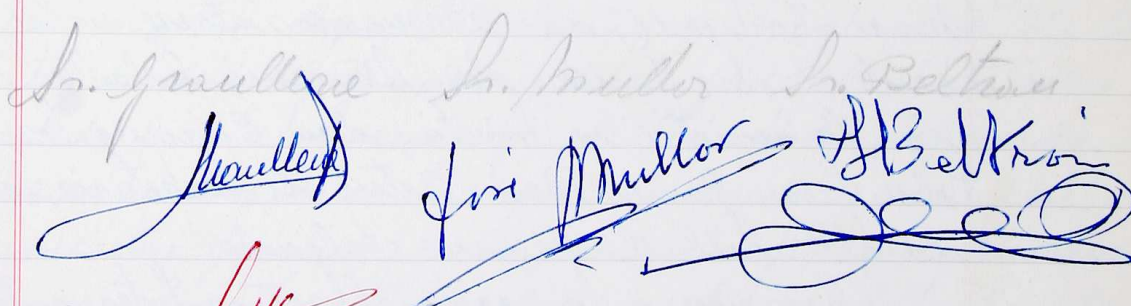 Sr. Graullera Sr. Mullor Sr. Beltran
Graullera José Mullor HBeltrán